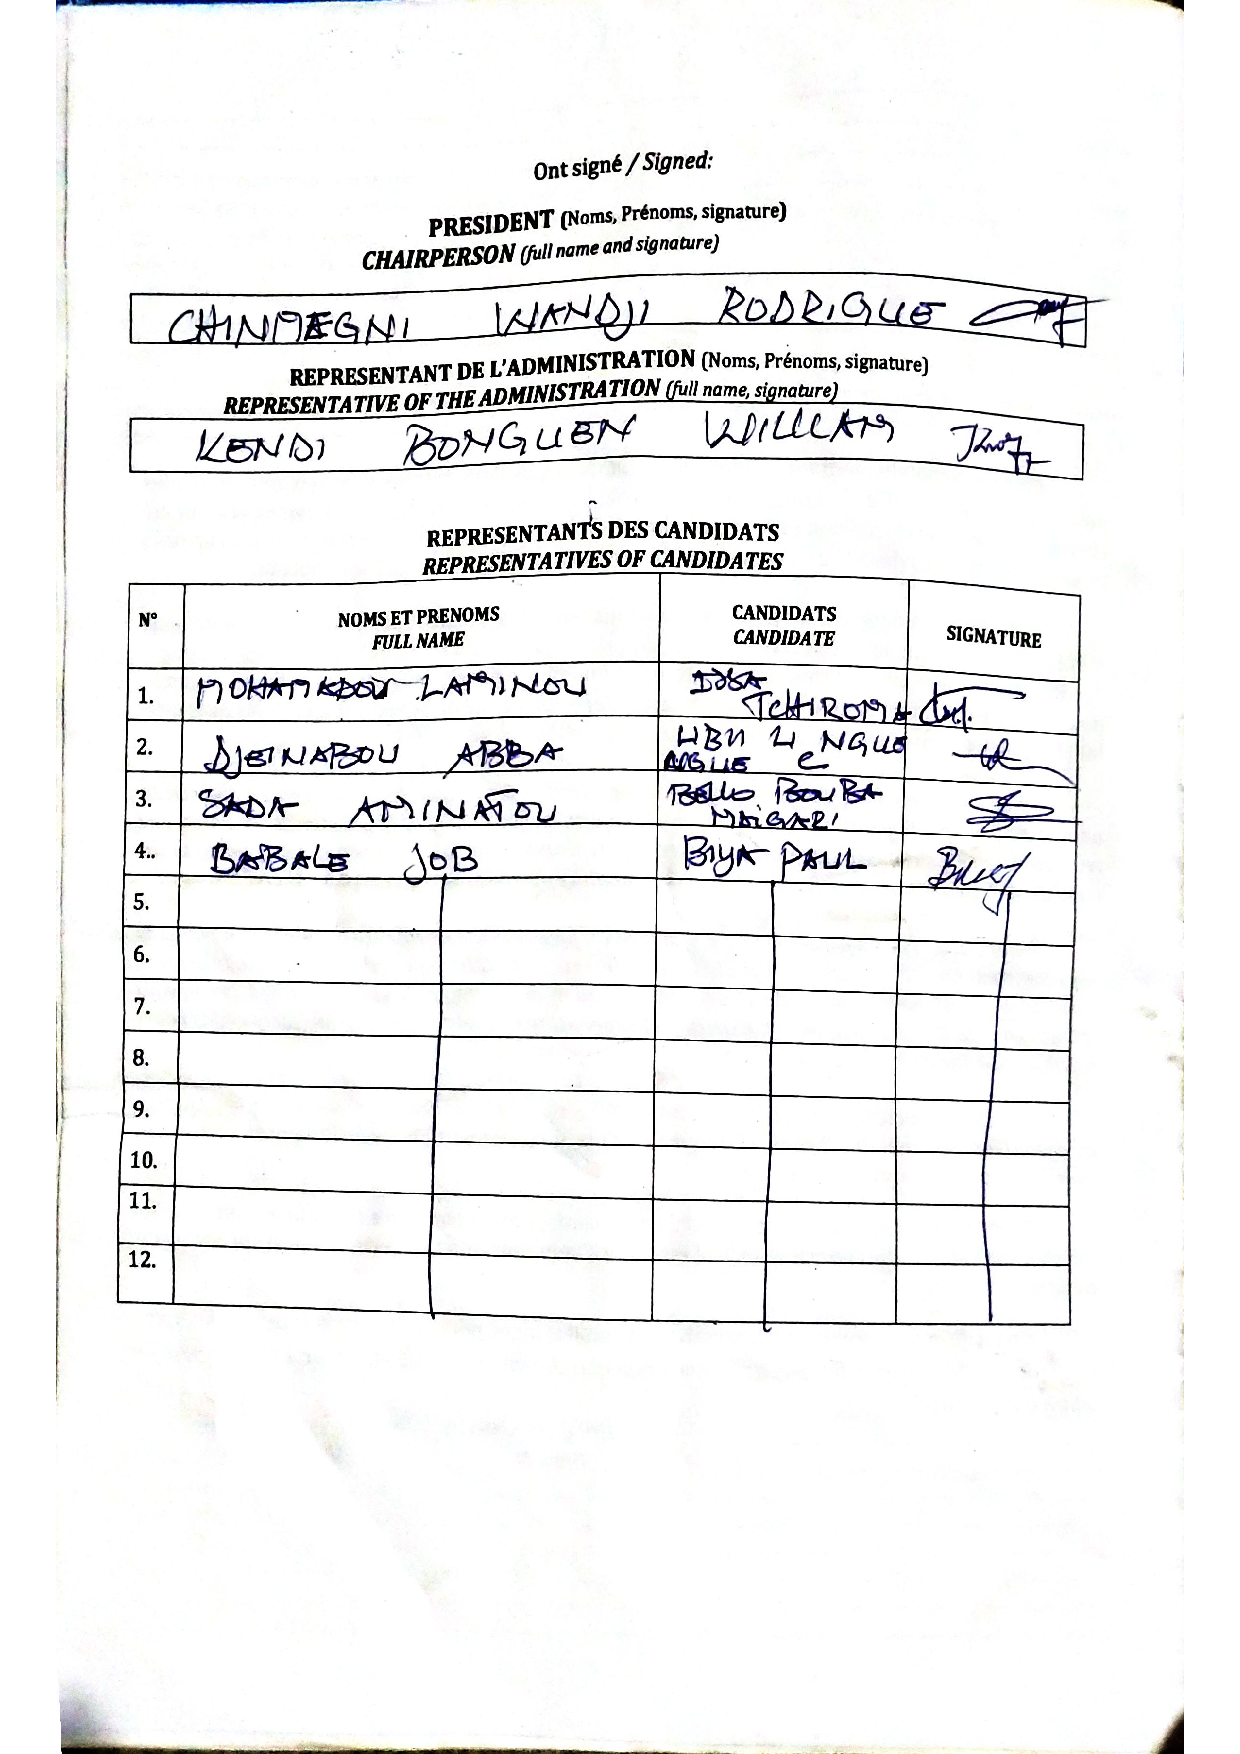 Ont signé / Signed:
PRESIDENT (Noms, Prénoms, signature)
CHAIRPERSON (full name and signature)
CHINMEGNI WANDJI RODRIGUE
REPRESENTANT DE L'ADMINISTRATION (Noms, Prénoms, signature)
REPRESENTATIVE OF THE ADMINISTRATION (full name, signature)
KENDI BONGUEN WILLIAM
REPRESENTANTS DES CANDIDATS
REPRESENTATIVES OF CANDIDATES
N° NOMS ET PRENOMS CANDIDATS SIGNATURE
FULL NAME CANDIDATE
1. MOHAMADOU LAMINOU ISSA
TCHIROMA
2. DJEINABOU ABBA
3. SADA AMINATOU BELLO BOUBA
MAIGARI
4.. BABALE JOB BIYA PAUL
5.
6.
7.
8.
9.
10.
11.
12.